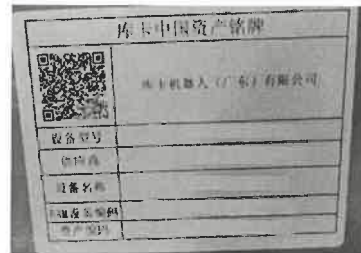 库卡中国资产铭牌
库卡机器人（广东）有限公司
设备型号
供应商
设备名称
设备编码
资产编码